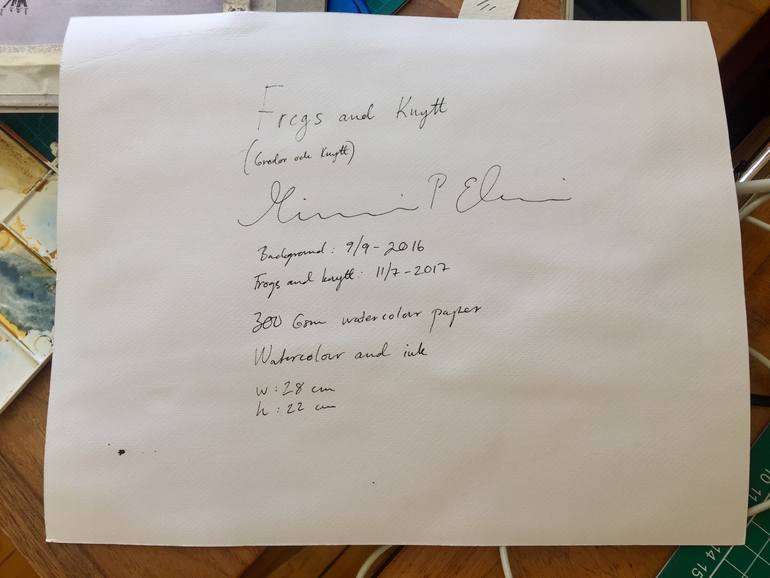 Frogs and Knytt
(Grodor och Knytt)
P
Background: 9/9-2016
Frogs and knytt: 11/7-2017
300 Gsm watercolour paper
Watercolour and ink
w: 28 cm
h: 22 cm
10 11
14 15